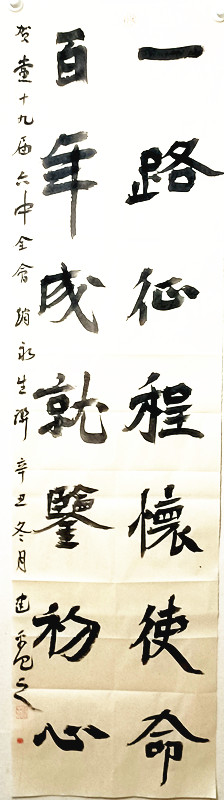 一路征程懷使命
百年成就鑒初心
賀黨十九届六中全會 趙永生聯 辛丑冬月 建